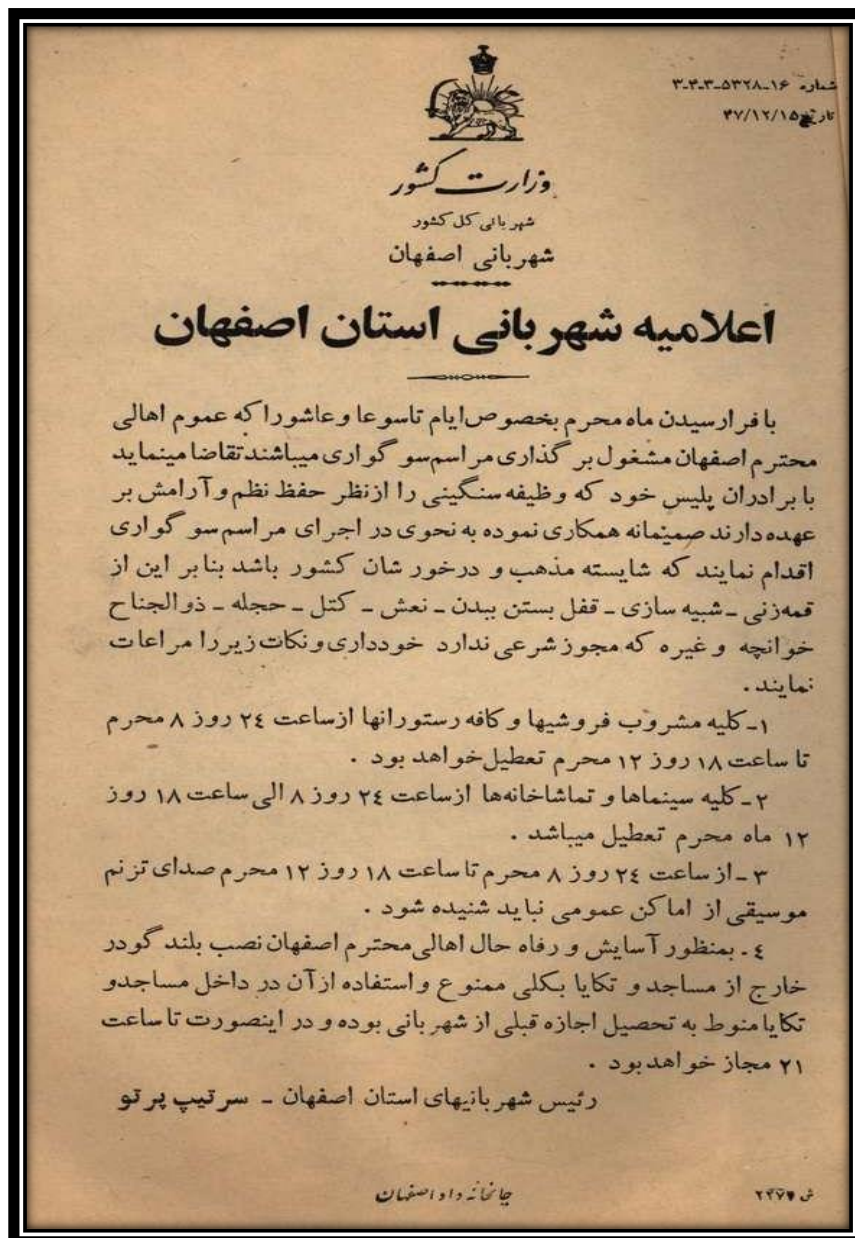 شماره ۱۶-۵۳۲۸-۳-۴-۳
تاریخ ۴۷/۱۲/۱۵
وزارت کشور
شهربانی کل کشور
شهربانی اصفهان
اعلامیه شهربانی استان اصفهان
با فرارسیدن ماه محرم بخصوص ایام تاسوعا و عاشورا که عموم اهالی
محترم اصفهان مشغول برگذاری مراسم سوگواری میباشند تقاضا مینماید
با برادران پلیس خود که وظیفه سنگینی را از نظر حفظ نظم و آرامش بر
عهده دارند صمیمانه همکاری نموده به نحوی در اجرای مراسم سوگواری
اقدام نمایند که شایسته مذهب و درخور شان کشور باشد بنابر این از
قمه‌زنی - شبیه سازی - قفل بستن ببدن - نعش - کتل - حجله - ذوالجناح
خوانچه و غیره که مجوز شرعی ندارد خودداری و نکات زیر را مراعات
نمایند.
۱- کلیه مشروب فروشیها و کافه رستورانها از ساعت ۲۴ روز ۸ محرم
تا ساعت ۱۸ روز ۱۲ محرم تعطیل خواهد بود .
۲- کلیه سینماها و تماشاخانه‌ها از ساعت ۲۴ روز ۸ الی ساعت ۱۸ روز
۱۲ ماه محرم تعطیل میباشد .
۳- از ساعت ۲۴ روز ۸ محرم تا ساعت ۱۸ روز ۱۲ محرم صدای ترنم
موسیقی از اماکن عمومی نباید شنیده شود .
۴- بمنظور آسایش و رفاه حال اهالی محترم اصفهان نصب بلند گو در
خارج از مساجد و تکایا بکلی ممنوع و استفاده از آن در داخل مساجد و
تکایا منوط به تحصیل اجازه قبلی از شهربانی بوده و در اینصورت تا ساعت
۲۱ مجاز خواهد بود .
رئیس شهربانیهای استان اصفهان - سرتیپ پرتو
چاپخانه داد اصفهان